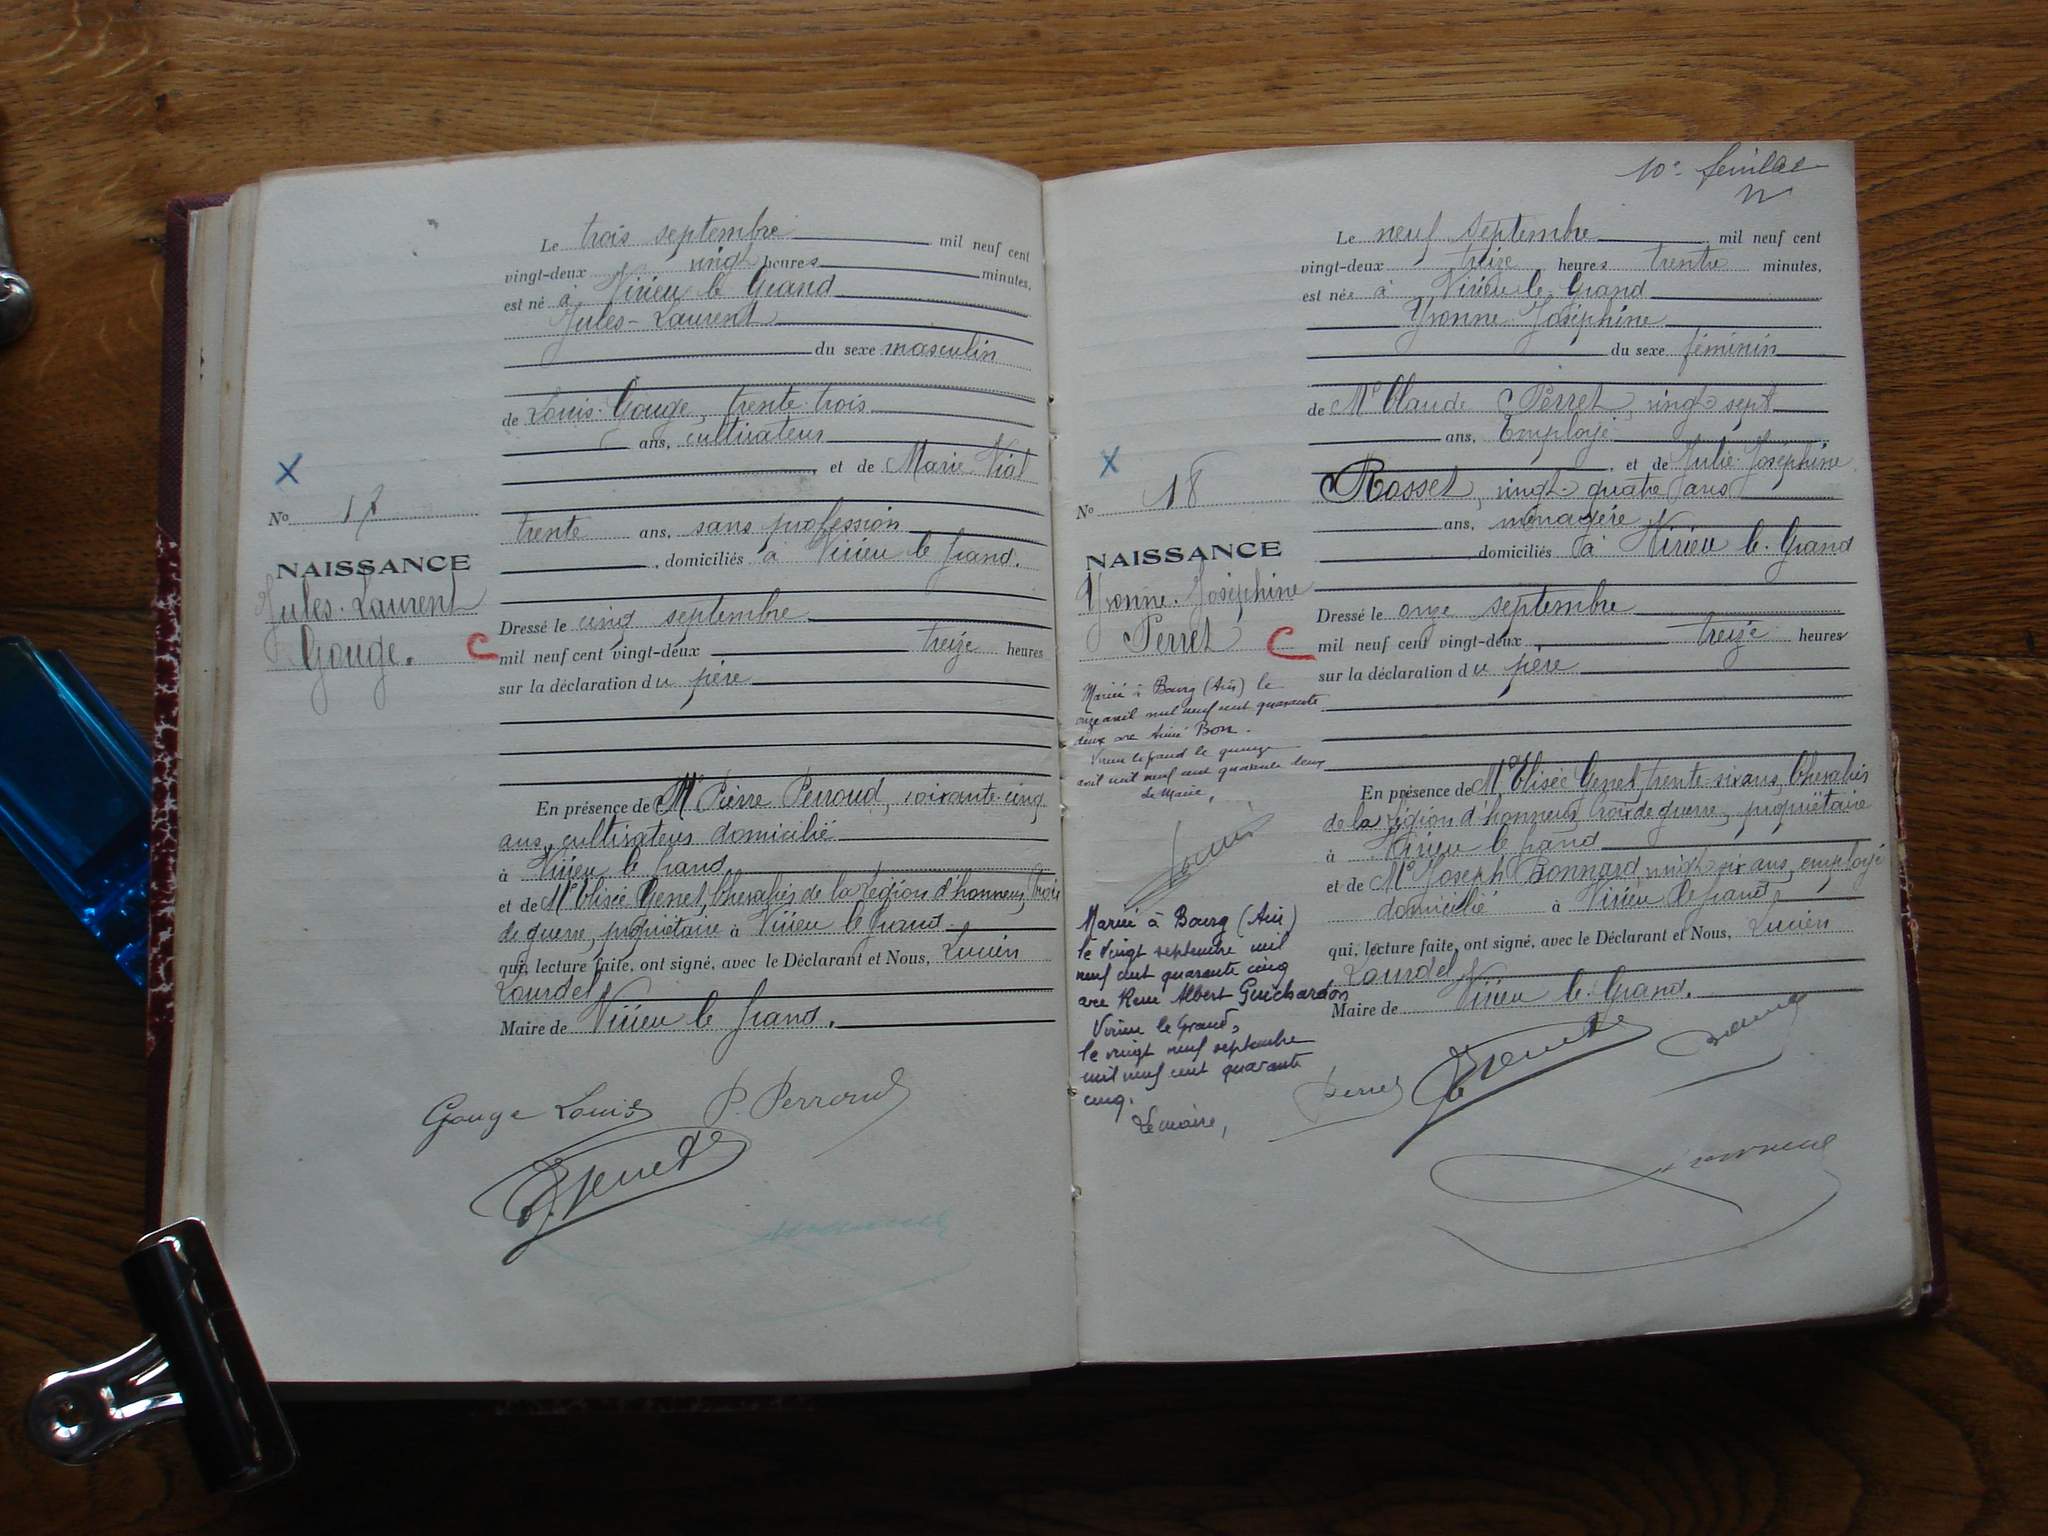 Le trois septembre mil neuf cent
vingt-deux vingt heures minutes,
est né à Virieu le Grand
Jules-Laurent
du sexe masculin
de Louis Gouge, trente-trois
ans, cultivateur
, et de Marie Vial
trente ans, sans profession
, domiciliés à Virieu le Grand.
Dressé le cinq septembre
mil neuf cent vingt-deux treize heures
sur la déclaration du père
En présence de Mr Pierre Perroud, soixante-cinq
ans, cultivateur domicilié
à Virieu le Grand
et de Mr Elisée Genet, Chevalier de la légion d'honneur, Croix
de guerre, propriétaire à Virieu le Grand
qui, lecture faite, ont signé, avec le Déclarant et Nous, Lucien
Lourdel
Maire de Virieu le Grand.
X
No 17
NAISSANCE
Jules-Laurent
Gouge.
C
Gouge Louis P. Perroud
E. Genet
10e feuillet
Le neuf septembre mil neuf cent
vingt-deux treize heures trente minutes,
est née à Virieu le Grand
Yvonne Joséphine
du sexe féminin
de Mr Claude Perret, vingt sept
ans, Employé
, et de Julie-Joséphine
Rosset, vingt-quatre ans
ans, ménagère
domiciliés à Virieu le Grand
Dressé le onze septembre
mil neuf cent vingt-deux treize heures
sur la déclaration du père
En présence de Mr Elisée Genet, trente-six ans, Chevalier
de la légion d'honneur, croix de guerre, propriétaire
à Virieu le Grand
et de Mr Joseph Bonnard, vingt six ans, employé
domicilié à Virieu le Grand
qui, lecture faite, ont signé, avec le Déclarant et Nous, Lucien
Lourdel
Maire de Virieu le Grand.
X
No 18
NAISSANCE
Yvonne-Joséphine
Perret
C
Mariée à Bourg (Ain) le
onze avril mil neuf cent quarante
deux avec Aimé Bon.
Virieu le Grand le quinze
avril mil neuf cent quarante deux
Le Maire,
Mariée à Bourg (Ain)
le vingt septembre mil
neuf cent quarante cinq
avec René Albert Guichardon
Virieu le Grand,
le vingt neuf septembre
mil neuf cent quarante
cinq.
Le maire,
Perret E. Genet